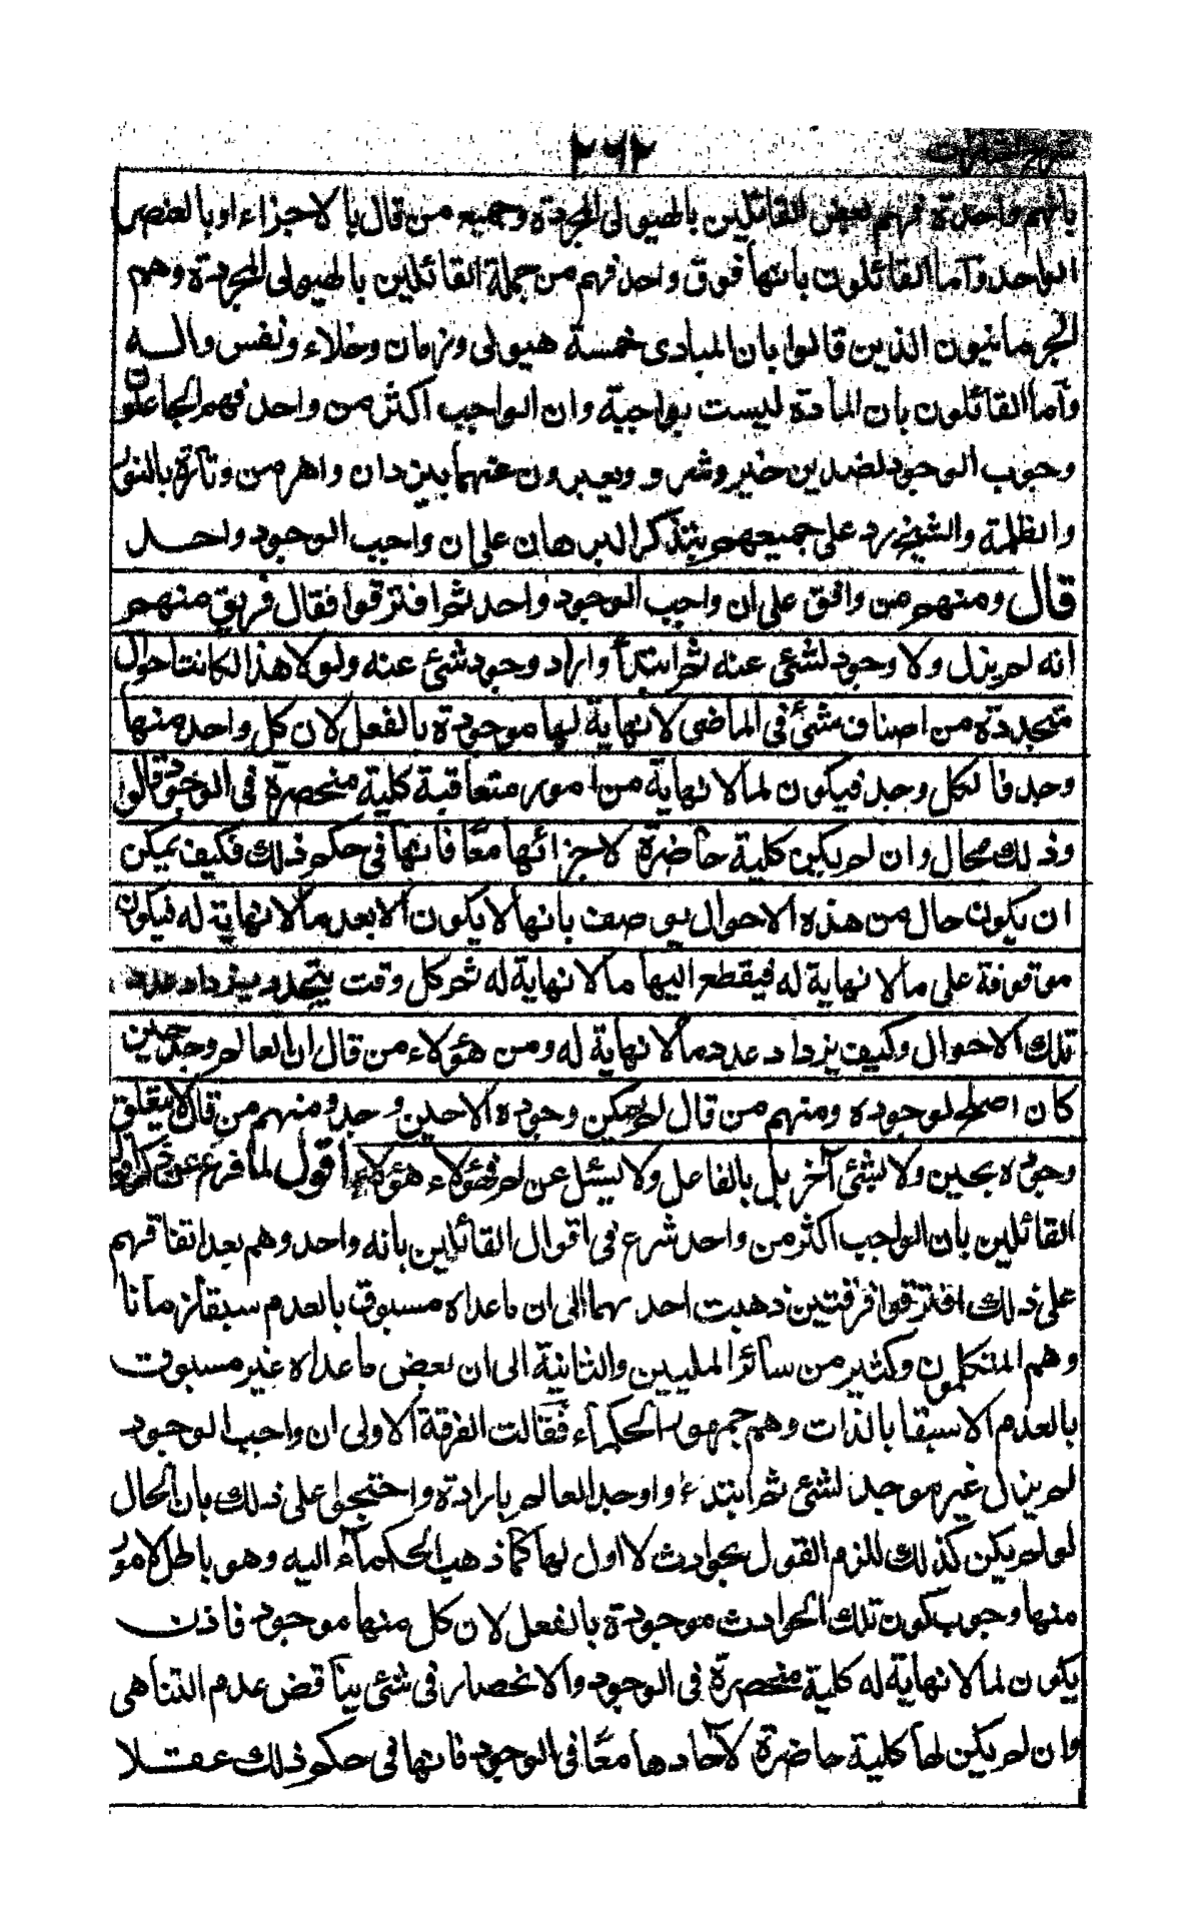 ٢٦٢
بانهم واحدة فمنهم بعض القائلين بالهيولى المجردة وجميع من قال بالاجزاء او بالعنصر
الواحد وأما القائلون بانها فوق واحد فهم من جملة القائلين بالهيولى المجردة وهم
الحرمانيون الذين قالوا بان المبادى خمسة هيولى وزمان وخلاء ونفس واله
وأما القائلون بان المادة ليست بواجبة وان الواجب اكثر من واحد فهم الجاعلون
وجوب الوجود لضدين خير وشر ويعبرون عنهما بيزدان واهرمن وتارة بالنور
والظلمة والشيخ رد على جميعهم بتذكر البرهان على ان واجب الوجود واحد
قال ومنهم من وافق على ان واجب الوجود واحد ثم افترقوا فقال فريق منهم
انه لم يزل ولا وجود لشئ عنه ثم ابتدأ واراد وجود شئ عنه ولولا هذا لكانت احوال
متجددة من اصناف شتى فى الماضى لا نهاية لها موجودة بالفعل لان كل واحد منها
وجد فالكل وجد فيكون لما لا نهاية من امور متعاقبة كلية منحصرة فى الوجود قالوا
وذلك محال وان لم يكن كلية حاضرة لاجزائها معًا فانها فى حكم ذلك فكيف يمكن
ان يكون حال من هذه الاحوال يوصف بانها لا يكون الا بعد مالا نهاية له فيكون
موقوفة على مالا نهاية له فيقطع اليها مالا نهاية له ثم كل وقت يتجدد يزداد عدد
تلك الاحوال وكيف يزداد عدد مالا نهاية له ومن هؤلاء من قال ان العالم وجد حين
كان اصلح لوجوده ومنهم من قال لم يمكن وجوده الا حين وجد ومنهم من قال لا يتعلق
وجوده بحين ولا بشئ آخر بل بالفاعل ولا يسئل عن لم فهؤلاء هؤلاء اقول لما فرغ عن
القائلين بان الواجب اكثر من واحد شرع فى اقوال القائلين بانه واحد وهم بعد اتفاقهم
على ذلك افترقوا فرقتين ذهبت احدهما الى ان ما عداه مسبوق بالعدم سبقا زمانا
وهم المتكلمون وكثير من سائر المليين والثانية الى ان بعض ما عداه غير مسبوق
بالعدم الا سبقا بالذات وهم جمهور الحكماء فقالت الفرقة الاولى ان واجب الوجود
لم يزل غير موجد لشئ ثم ابتدء واوجد العالم بارادة واحتجوا على ذلك بان الحال
لو لم يكن كذلك للزم القول بحوادث لا اول لها كما ذهب الحكماء اليه وهو باطل لامور
منها وجوب كون تلك الحوادث موجودة بالفعل لان كل منها موجود فاذن
يكون لما لا نهاية له كلية منحصرة فى الوجود والانحصار فى شئ يناقض عدم التناهى
وان لم يكن لها كلية حاضرة لآحادها معًا فى الوجود فانها فى حكم ذلك عقلا